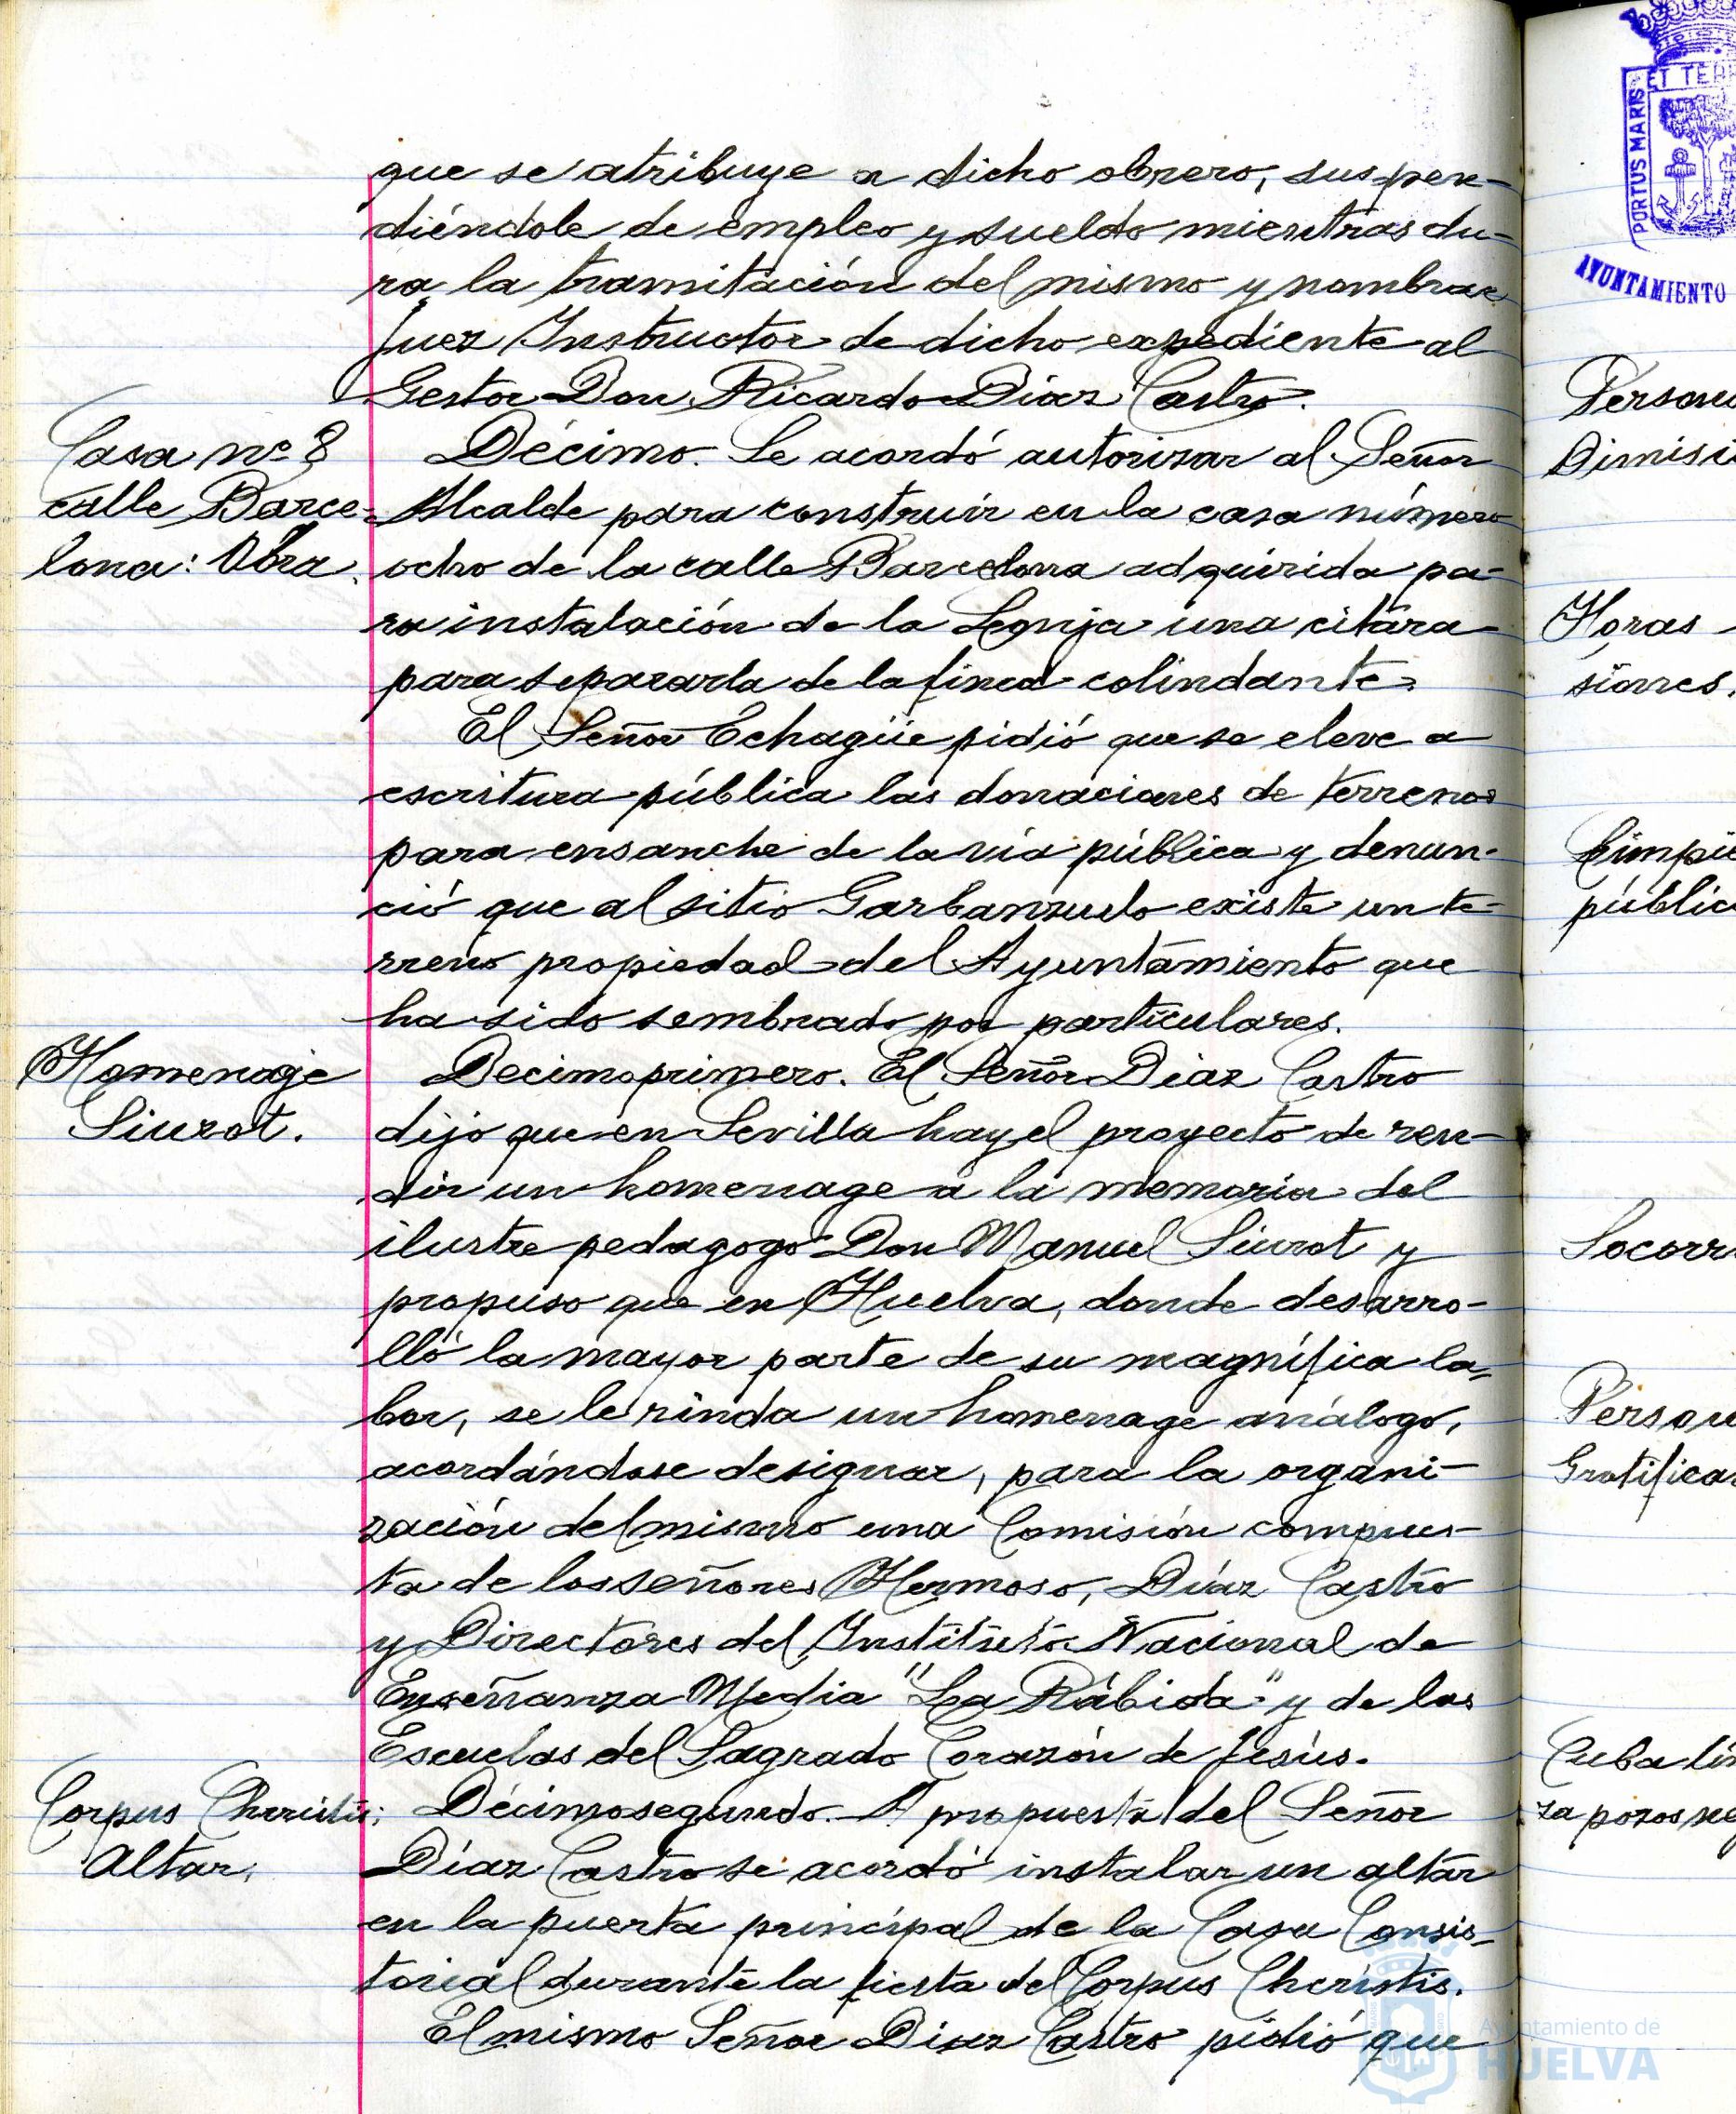 que se atribuye a dicho obrero, suspen-
diéndole de empleo y sueldo mientras du-
ra la tramitación del mismo y nombrar
Juez Instructor de dicho expediente al
Gestor Don Ricardo Díaz Castro.
Casa nº 8
calle Barce-
lona: Obra.
Décimo. Se acordó autorizar al Señor
Alcalde para construir en la casa número
ocho de la calle Barcelona adquirida pa-
ra instalación de la Lonja una citara
para separarla de la finca colindante.
El Señor Echagüe pidió que se eleve a
escritura pública las donaciones de terrenos
para ensanche de la vía pública y denun-
ció que al sitio Garbanzuelo existe un te-
rreno propiedad del Ayuntamiento que
ha sido sembrado por particulares.
Homenage
Siurot.
Decimoprimero. El Señor Díaz Castro
dijo que en Sevilla hay el proyecto de ren-
dir un homenage a la memoria del
ilustre pedagogo Don Manuel Siurot y
propuso que en Huelva, donde desarro-
lló la mayor parte de su magnífica la-
bor, se le rinda un homenage análogo,
acordándose designar, para la organi-
zación del mismo una Comisión compues-
ta de los señores Hermoso, Díaz Castro
y Directores del Instituto Nacional de
Enseñanza Media "La Rábida" y de las
Escuelas del Sagrado Corazón de Jesús.
Corpus Christis:
Altar.
Décimosegundo. A propuesta del Señor
Díaz Castro se acordó instalar un altar
en la puerta principal de la Casa Consis-
torial durante la fiesta del Corpus Christis.
El mismo Señor Díaz Castro pidió que
PORTUS MARIS ET TERR
AYUNTAMIENTO
Person
Dimisi
Horas
siones.
Limpie
públic
Socorr
Person
Gratifica
Cuba lim
za pozos neg
Ayuntamiento de
HUELVA